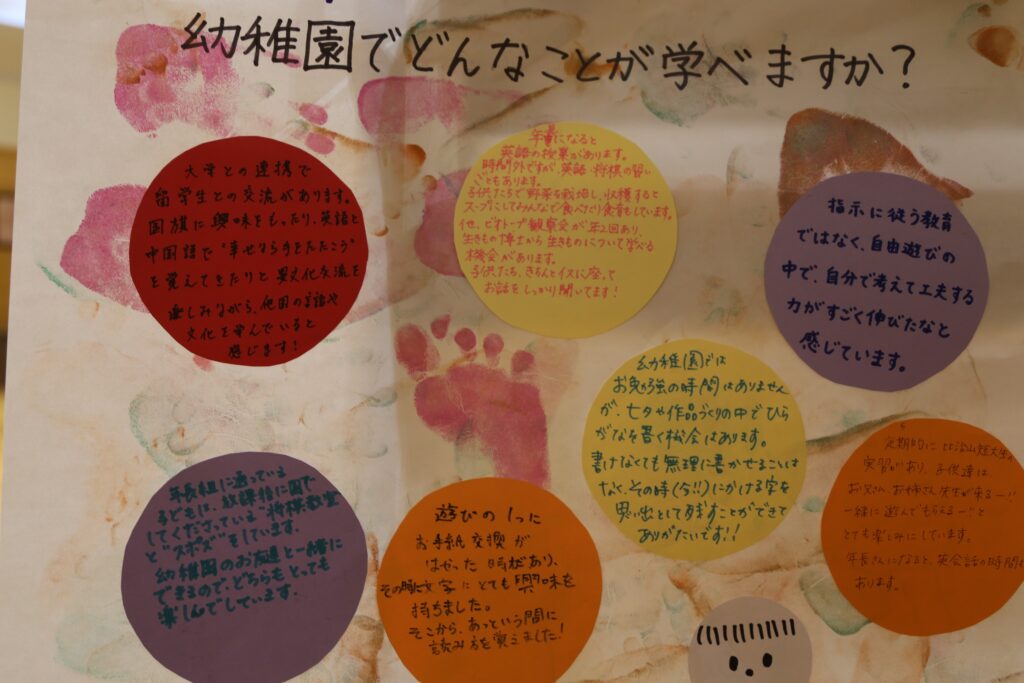 幼稚園でどんなことが学べますか？
大学との連携で
留学生との交流があります。
国旗に興味をもったり、英語と
中国語で"幸せなら手をたたこう"
を覚えてきたりと異文化交流を
楽しみながら、他国の言語や
文化を学んでいると
感じます！
年長になると
英語の授業があります。
時間外ですが、英語・将棋の習い
ごともあります。
子供たちで野菜を栽培し、収穫すると
スープにしてみんなで食べたり食育もしています。
他、ビオトープ観察会が年2回あり、
生きもの博士から生きものについて学べる
機会があります。
子供たち、きちんとイスに座って
お話をしっかり聞いてます！
指示に従う教育
ではなく、自由遊びの
中で、自分で考えて工夫する
力がすごく伸びたなと
感じています。
幼稚園では
お勉強の時間はありません
が、七夕や作品づくりの中でひら
がなを書く機会はあります。
書けなくても無理に書かせることは
なく、その時(今!!)にかける字を
思い出として残すことができて
ありがたいです!!
年長組に通っている
子どもは、放課後に園で
してくださっている"将棋教室"
と"スポズ"をしています。
幼稚園のお友達と一緒に
できるので、どちらもとっても
楽しんでしています。
遊びの1つに
お手紙交換が
はやった時があり、
その時に文字にとても興味を
持ちました。
そこから、あっという間に
読み方を覚えました！
定期的に比治山短大生の
実習があり、子供達は
お兄さん、お姉さん先生が来るー!!
一緒に遊んでもらえるー!!と
とても楽しみにしています。
年長さんになると、英会話の時間も
あります。